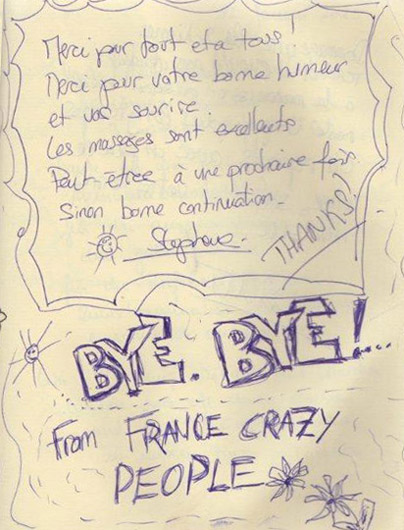 Merci pour tout et a tous !
Merci pour votre bonne humeur
et vos sourire.
Les massages sont excellents
Peut-être à une prochaine fois
Sinon bonne continuation_
Stephane_
THANKS!
BYE. BYE!...
From FRANCE CRAZY
PEOPLE